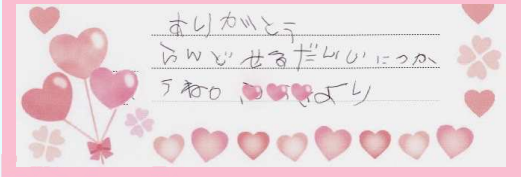 ありがとう
らんどせるだいじにつか
うねの より